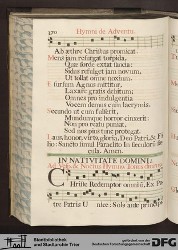 370 Hymni de Adventu.
Ab æthre Christus promicat.
Mens jam resurgat torpida,
Quæ sorde extat saucia:
Sidus refulget jam novum,
Ut tollat omne noxium.
E sursum Agnus mittitur,
Laxare gratis debitum:
Omnes pro indulgentia
Vocem demus cum lacrymis.
Secundo ut cum fulserit
Mundumque horror cinxerit
Non pro reatu puniat,
Sed nos pius tunc protegat.
Laus, honor, virtus, gloria, Deo Patri, & Filio:
Sancto simul Paraclito In seculorum
secula. Amen.
IN NATIVITATE DOMINI
Ad Vesp.
Christe Redemptor omnium, Ex Pa-
tre Patris Unice: Solus ante prin-
Stadtbibliothek
und Stadtarchiv Trier
gefördert von der
Deutschen Forschungsgemeinschaft
DFG